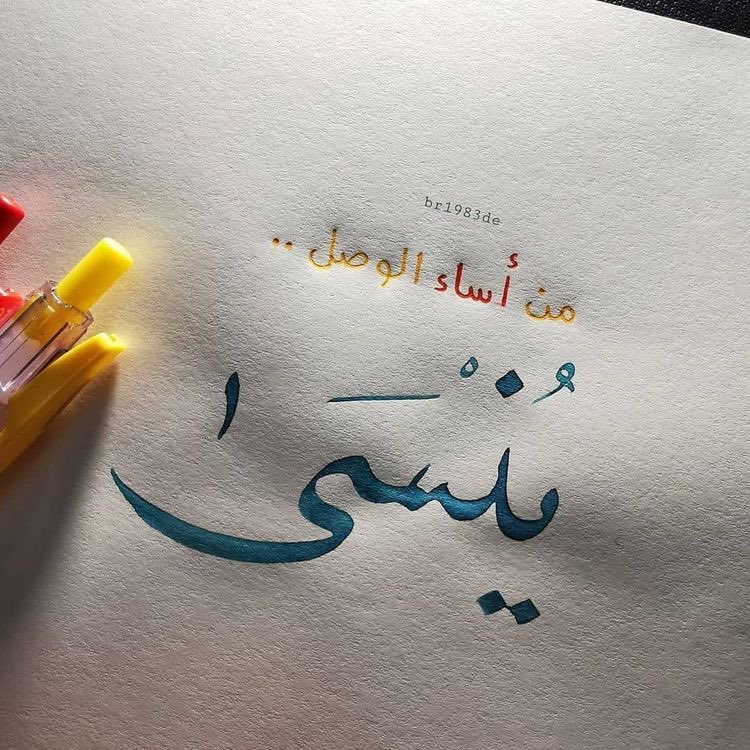 br1983de
من أساء الوصل ..
يُنْسَى